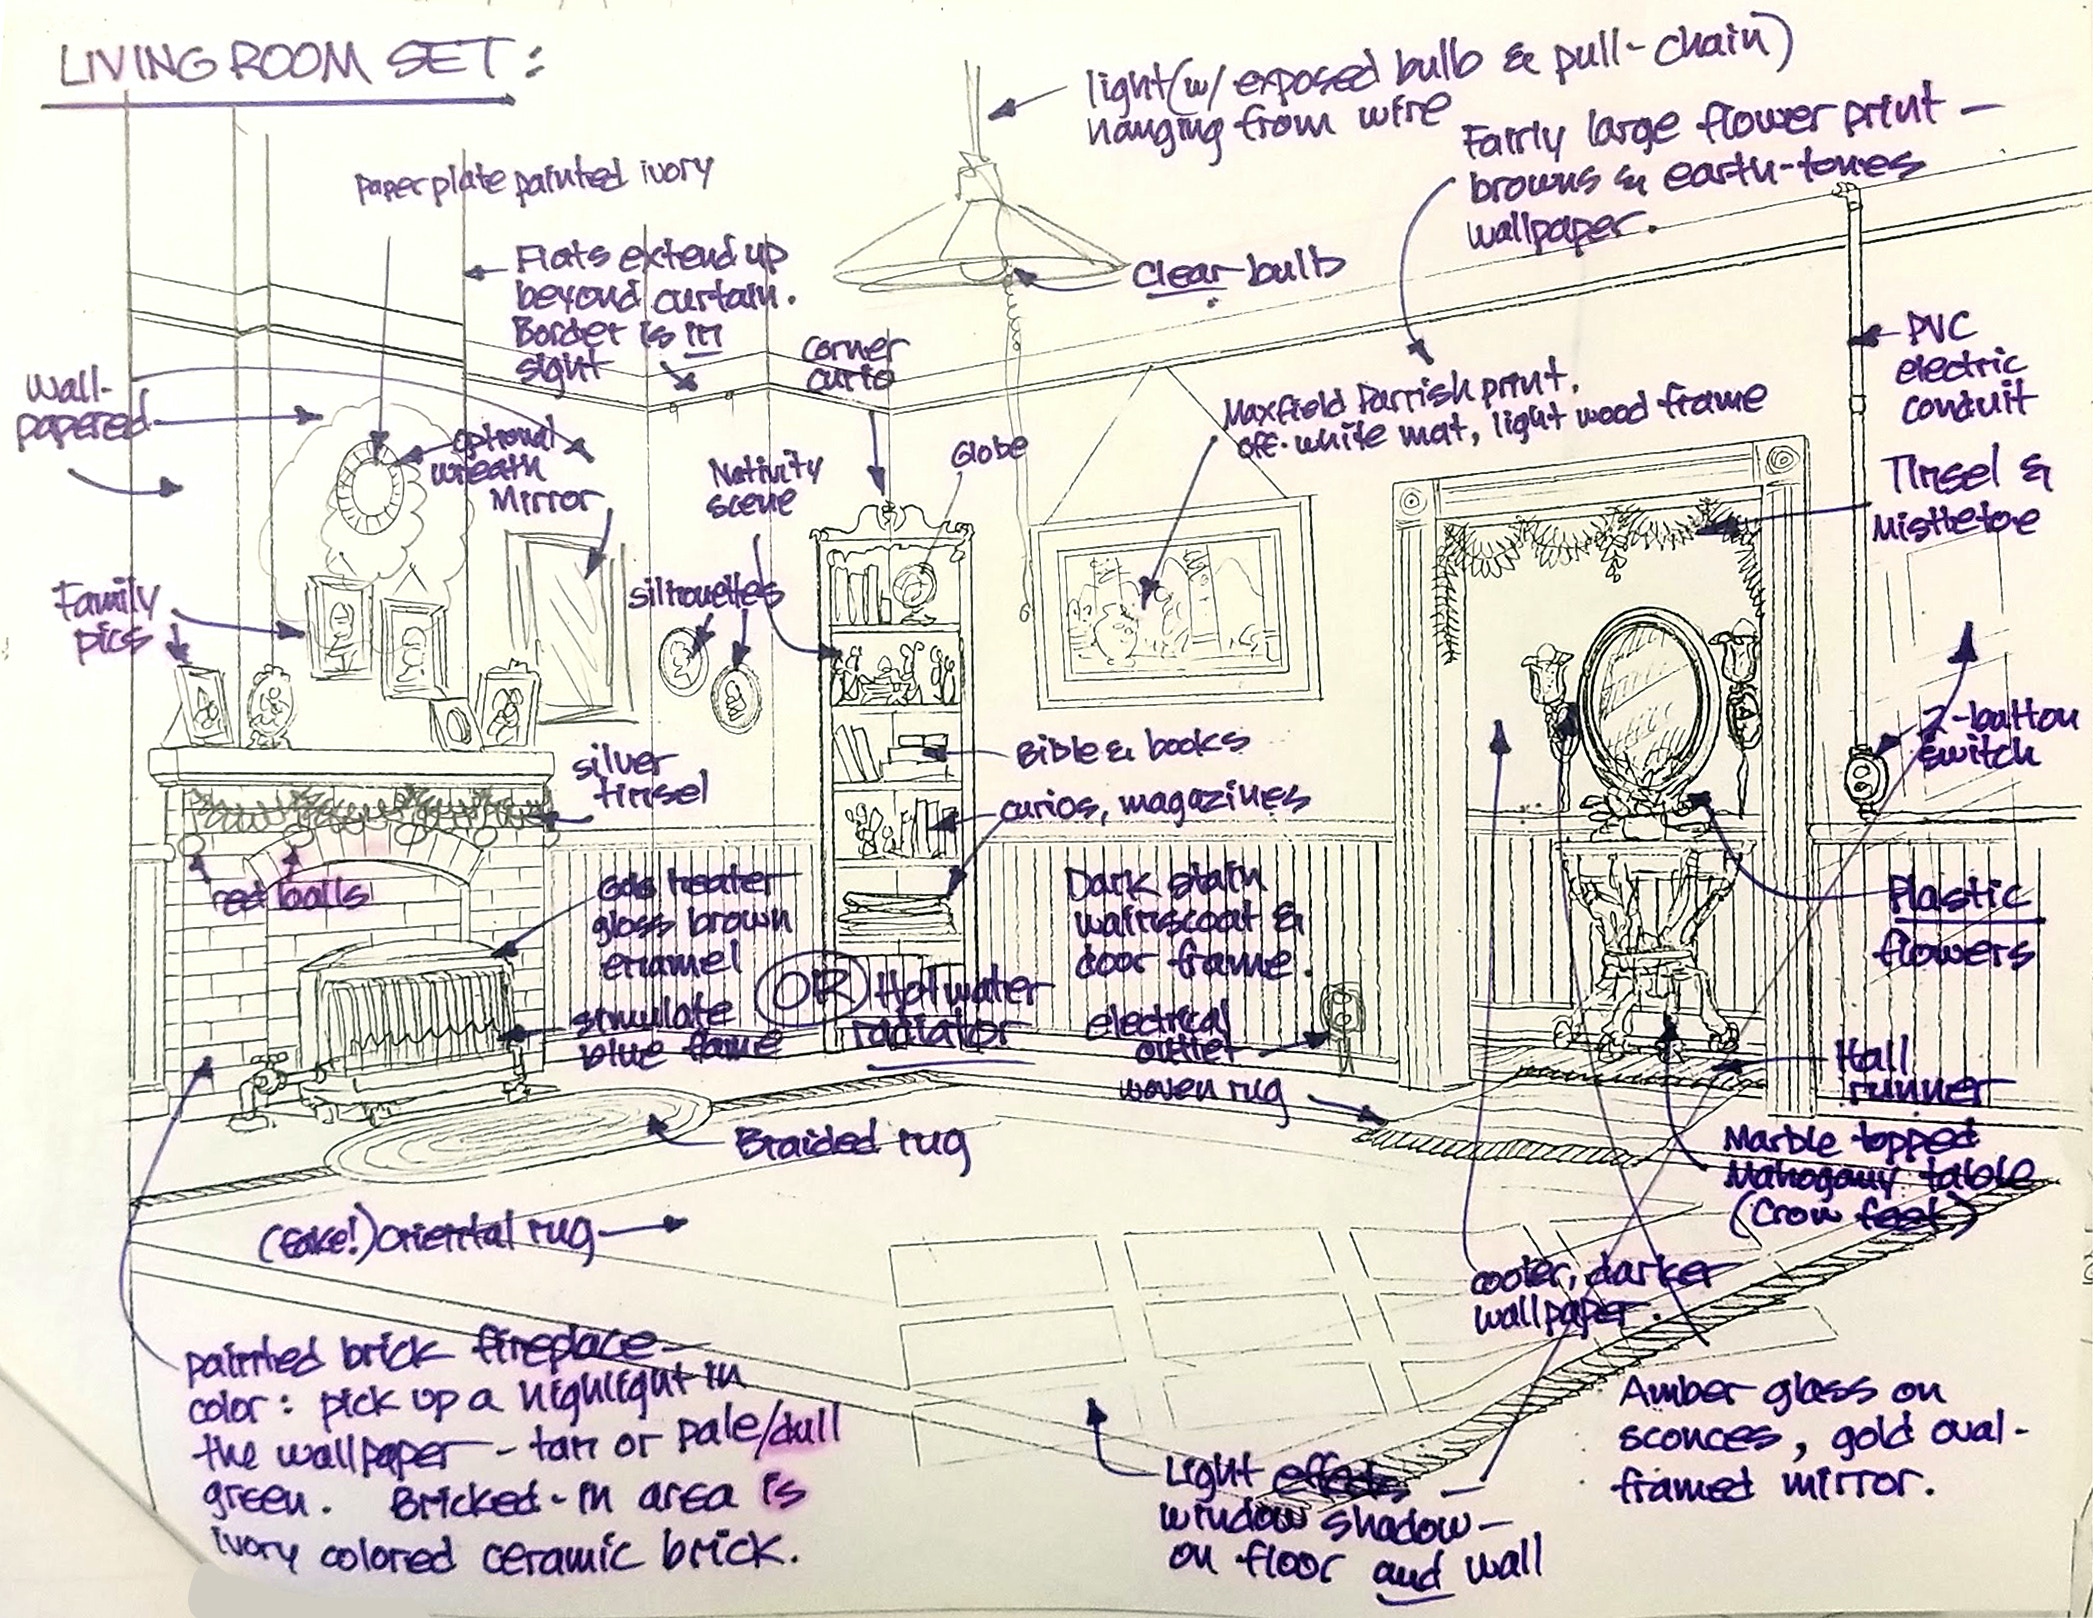 LIVING ROOM SET:
light (w/ exposed bulb & pull-chain)
hanging from wire
Fairly large flower print —
browns & earth-tones
wallpaper.
paper plate painted ivory
Flats extend up
beyond curtain.
Border is in
sight
Clear bulb
corner
curio
PVC
electric
conduit
Wall-
papered
Maxfield Parrish print,
off-white mat, light wood frame
optional
wreath
Mirror
Nativity
scene
Globe
Tinsel &
Mistletoe
Family
pics
silhouettes
2-button
switch
silver
tinsel
Bible & books
curios, magazines
red balls
Gas heater
gloss brown
enamel
simulate
blue flame
OR
Hot water
radiator
Dark stain
wainscoat &
door frame.
electrical
outlet
woven rug
Plastic
flowers
Hall
runner
Braided rug
Marble topped
Mahogany table
(Crow feet)
(fake!) oriental rug
cooler, darker
wallpaper.
painted brick fireplace —
color: pick up a highlight in
the wallpaper - tan or pale/dull
green. Bricked-in area is
ivory colored ceramic brick.
Light effects —
window shadow —
on floor and wall
Amber glass on
sconces, gold oval-
framed mirror.